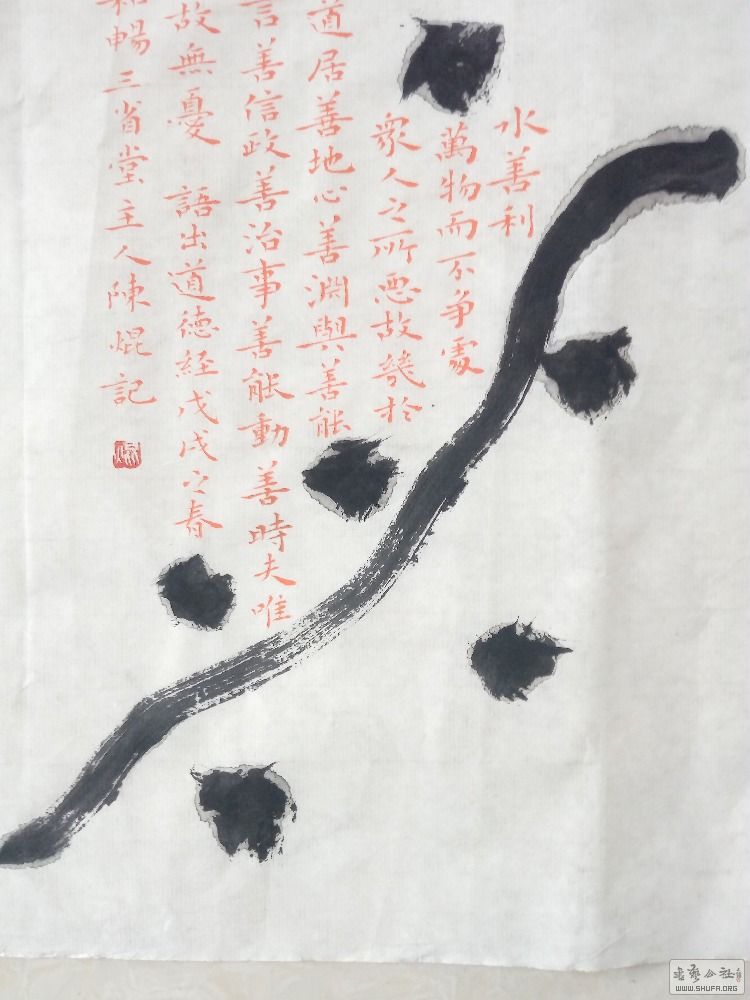 水善利
萬物而不争處
衆人之所惡故幾於
道居善地心善淵與善能
言善信政善治事善能動善時夫唯
故無憂 語出道德經戊戌之春
和暢三省堂主人陳焜記
书艺公社
WWW.SHUFA.ORG